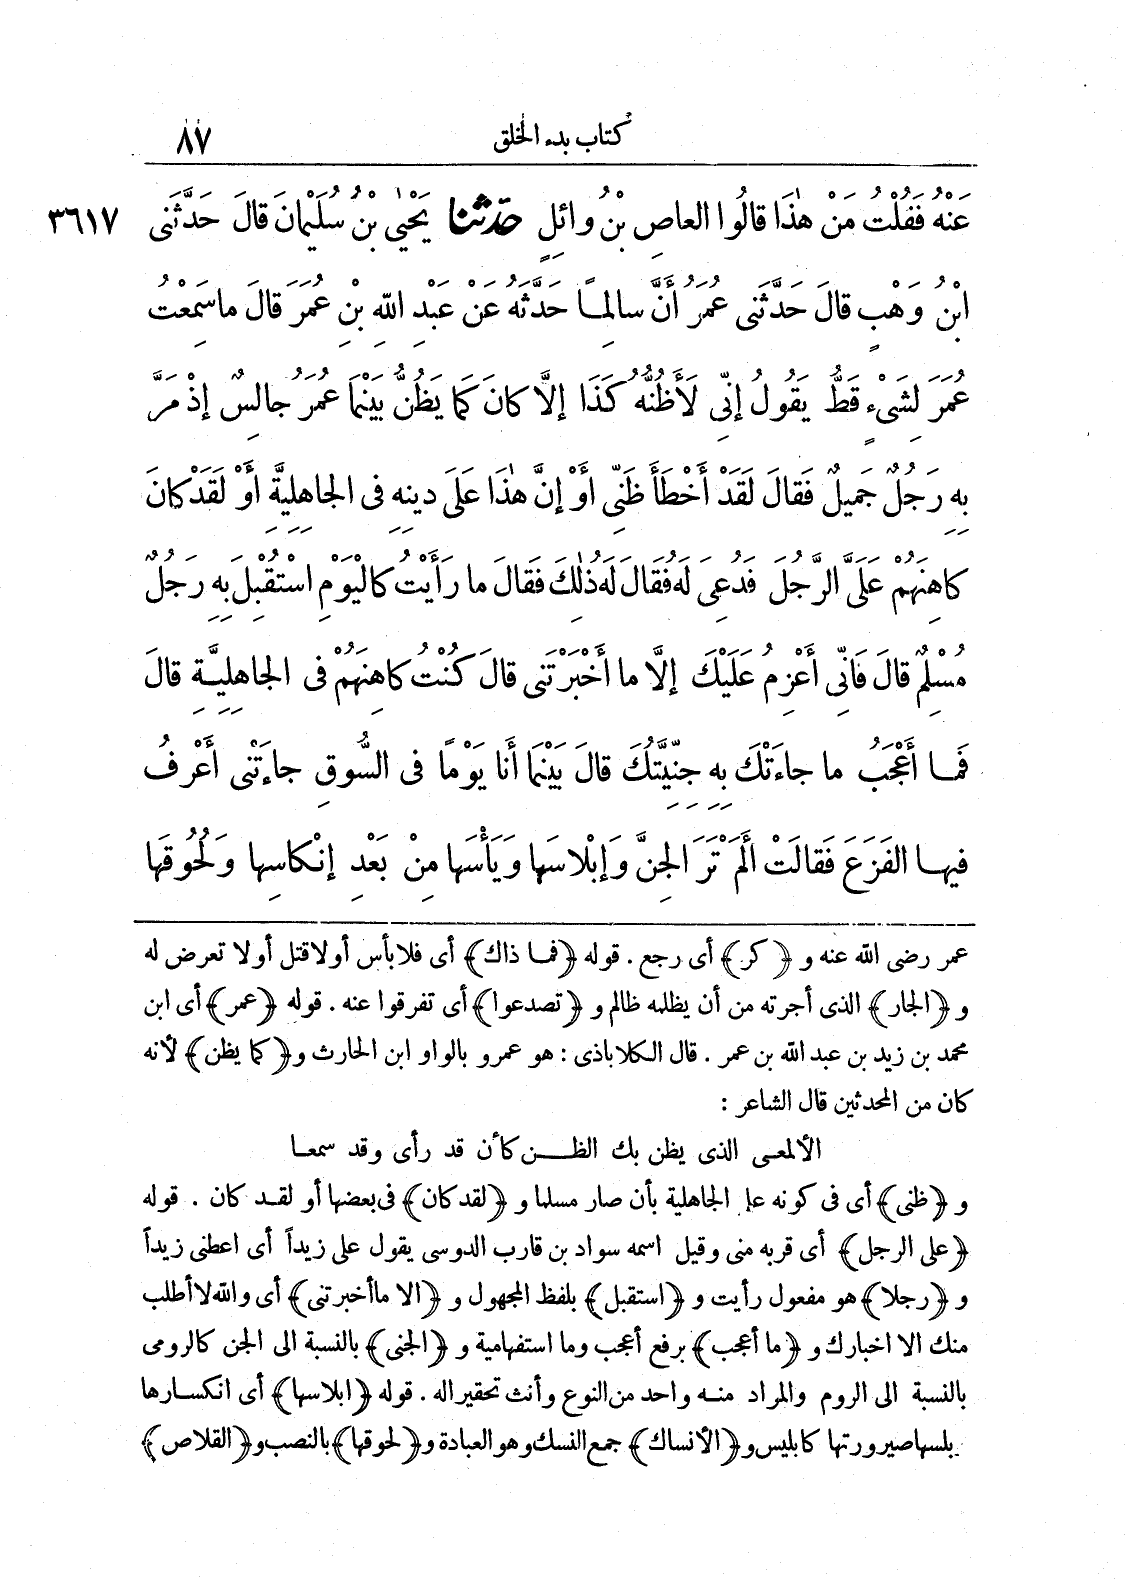 كتاب بدء الخلق ٨٧
عَنْهُ فَقُلْتُ مَنْ هٰذَا قالُوا العاصِ بْنُ وائِلٍ حَدَّثَنا يَحْيٰى بْنُ سُلَيْمانَ قالَ حَدَّثَنى ٣٦١٧
ابْنُ وَهْبٍ قالَ حَدَّثَنى عُمَرُ أَنَّ سالِمـاً حَدَّثَهُ عَنْ عَبْدِ اللّهِ بْنِ عُمَرَ قالَ ماسَمِعْتُ
عُمَرَ لِشَىْءٍ قَطُّ يَقُولُ إِنِّى لَأَظُنُّهُ كَذَا إِلَّا كانَ كَمَا يَظُنُّ بَيْنَمَا عُمَرُ جالِسٌ إِذْ مَرَّ
بِهِ رَجُلٌ جَمِيلٌ فَقالَ لَقَدْ أَخْطَأَ ظَنِّى أَوْ إِنَّ هٰذَا عَلَى دِينِهِ فى الجاهِلِيَّةِ أَوْ لَقَدْ كانَ
كاهِنَهُمْ عَلَىَّ الرَّجُلَ فَدُعِىَ لَهُ فَقالَ لَهُ ذٰلِكَ فَقالَ ما رَأَيْتُ كالْيَوْمِ اسْتُقْبِلَ بِهِ رَجُلٌ
مُسْلِمٌ قالَ فَانِّى أَعْزِمُ عَلَيْكَ إِلَّا ما أَخْبَرْتَنى قالَ كُنْتُ كاهِنَهُمْ فى الجاهِلِيَّةِ قالَ
فَمـا أَعْجَبُ ما جاءَتْكَ بِهِ جِنِّيَّتُكَ قالَ بَيْنَمَا أَنا يَوْماً فى السُّوقِ جاءَتْنى أَعْرِفُ
فيهـا الفَزَعَ فَقالَتْ أَلَمْ تَرَ الجِنَّ وَإِبْلاسَها وَيَأْسَها مِنْ بَعْدِ إِنْكاسِها وَلُحُوقَها
عمر رضى الله عنه و ﴿كر﴾ أى رجع . قوله ﴿فمـا ذاك﴾ أى فلا بأس أو لا قتل أو لا تعرض له
و ﴿الجار﴾ الذى أجرته من أن يظلمه ظالم و ﴿تصدعوا﴾ أى تفرقوا عنه . قوله ﴿عمر﴾ أى ابن
محمد بن زيد بن عبد الله بن عمر . قال الكلاباذى : هو عمرو بالواو ابن الحارث و﴿كما يظن﴾ لأنه
كان من المحدثين قال الشاعر :
الألمعـى الذى يظن بك الظـــن كأن قد رأى وقد سمعـا
و ﴿ظنى﴾ أى فى كونه على الجاهلية بأن صار مسلما و ﴿لقد كان﴾ فى بعضها أو لقـد كان . قوله
﴿على الرجل﴾ أى قربه منى وقيل اسمه سواد بن قارب الدوسى يقول على زيداً أى اعطنى زيداً
و ﴿رجلا﴾ هو مفعول رأيت و ﴿استقبل﴾ بلفظ المجهول و ﴿الا ما أخبرتنى﴾ أى والله لا أطلب
منك الا اخبارك و ﴿ما أعجب﴾ برفع أعجب وما استفهامية و ﴿الجنى﴾ بالنسبة الى الجن كالرومى
بالنسبة الى الروم والمراد منـه واحد من النوع وأنث تحقيرا له . قوله ﴿ابلاسها﴾ أى انكسـارها
بلسها صيرورتها كابليس و﴿الأنساك﴾ جمع النسك وهو العبادة و﴿لحوقها﴾ بالنصب و﴿القلاص﴾